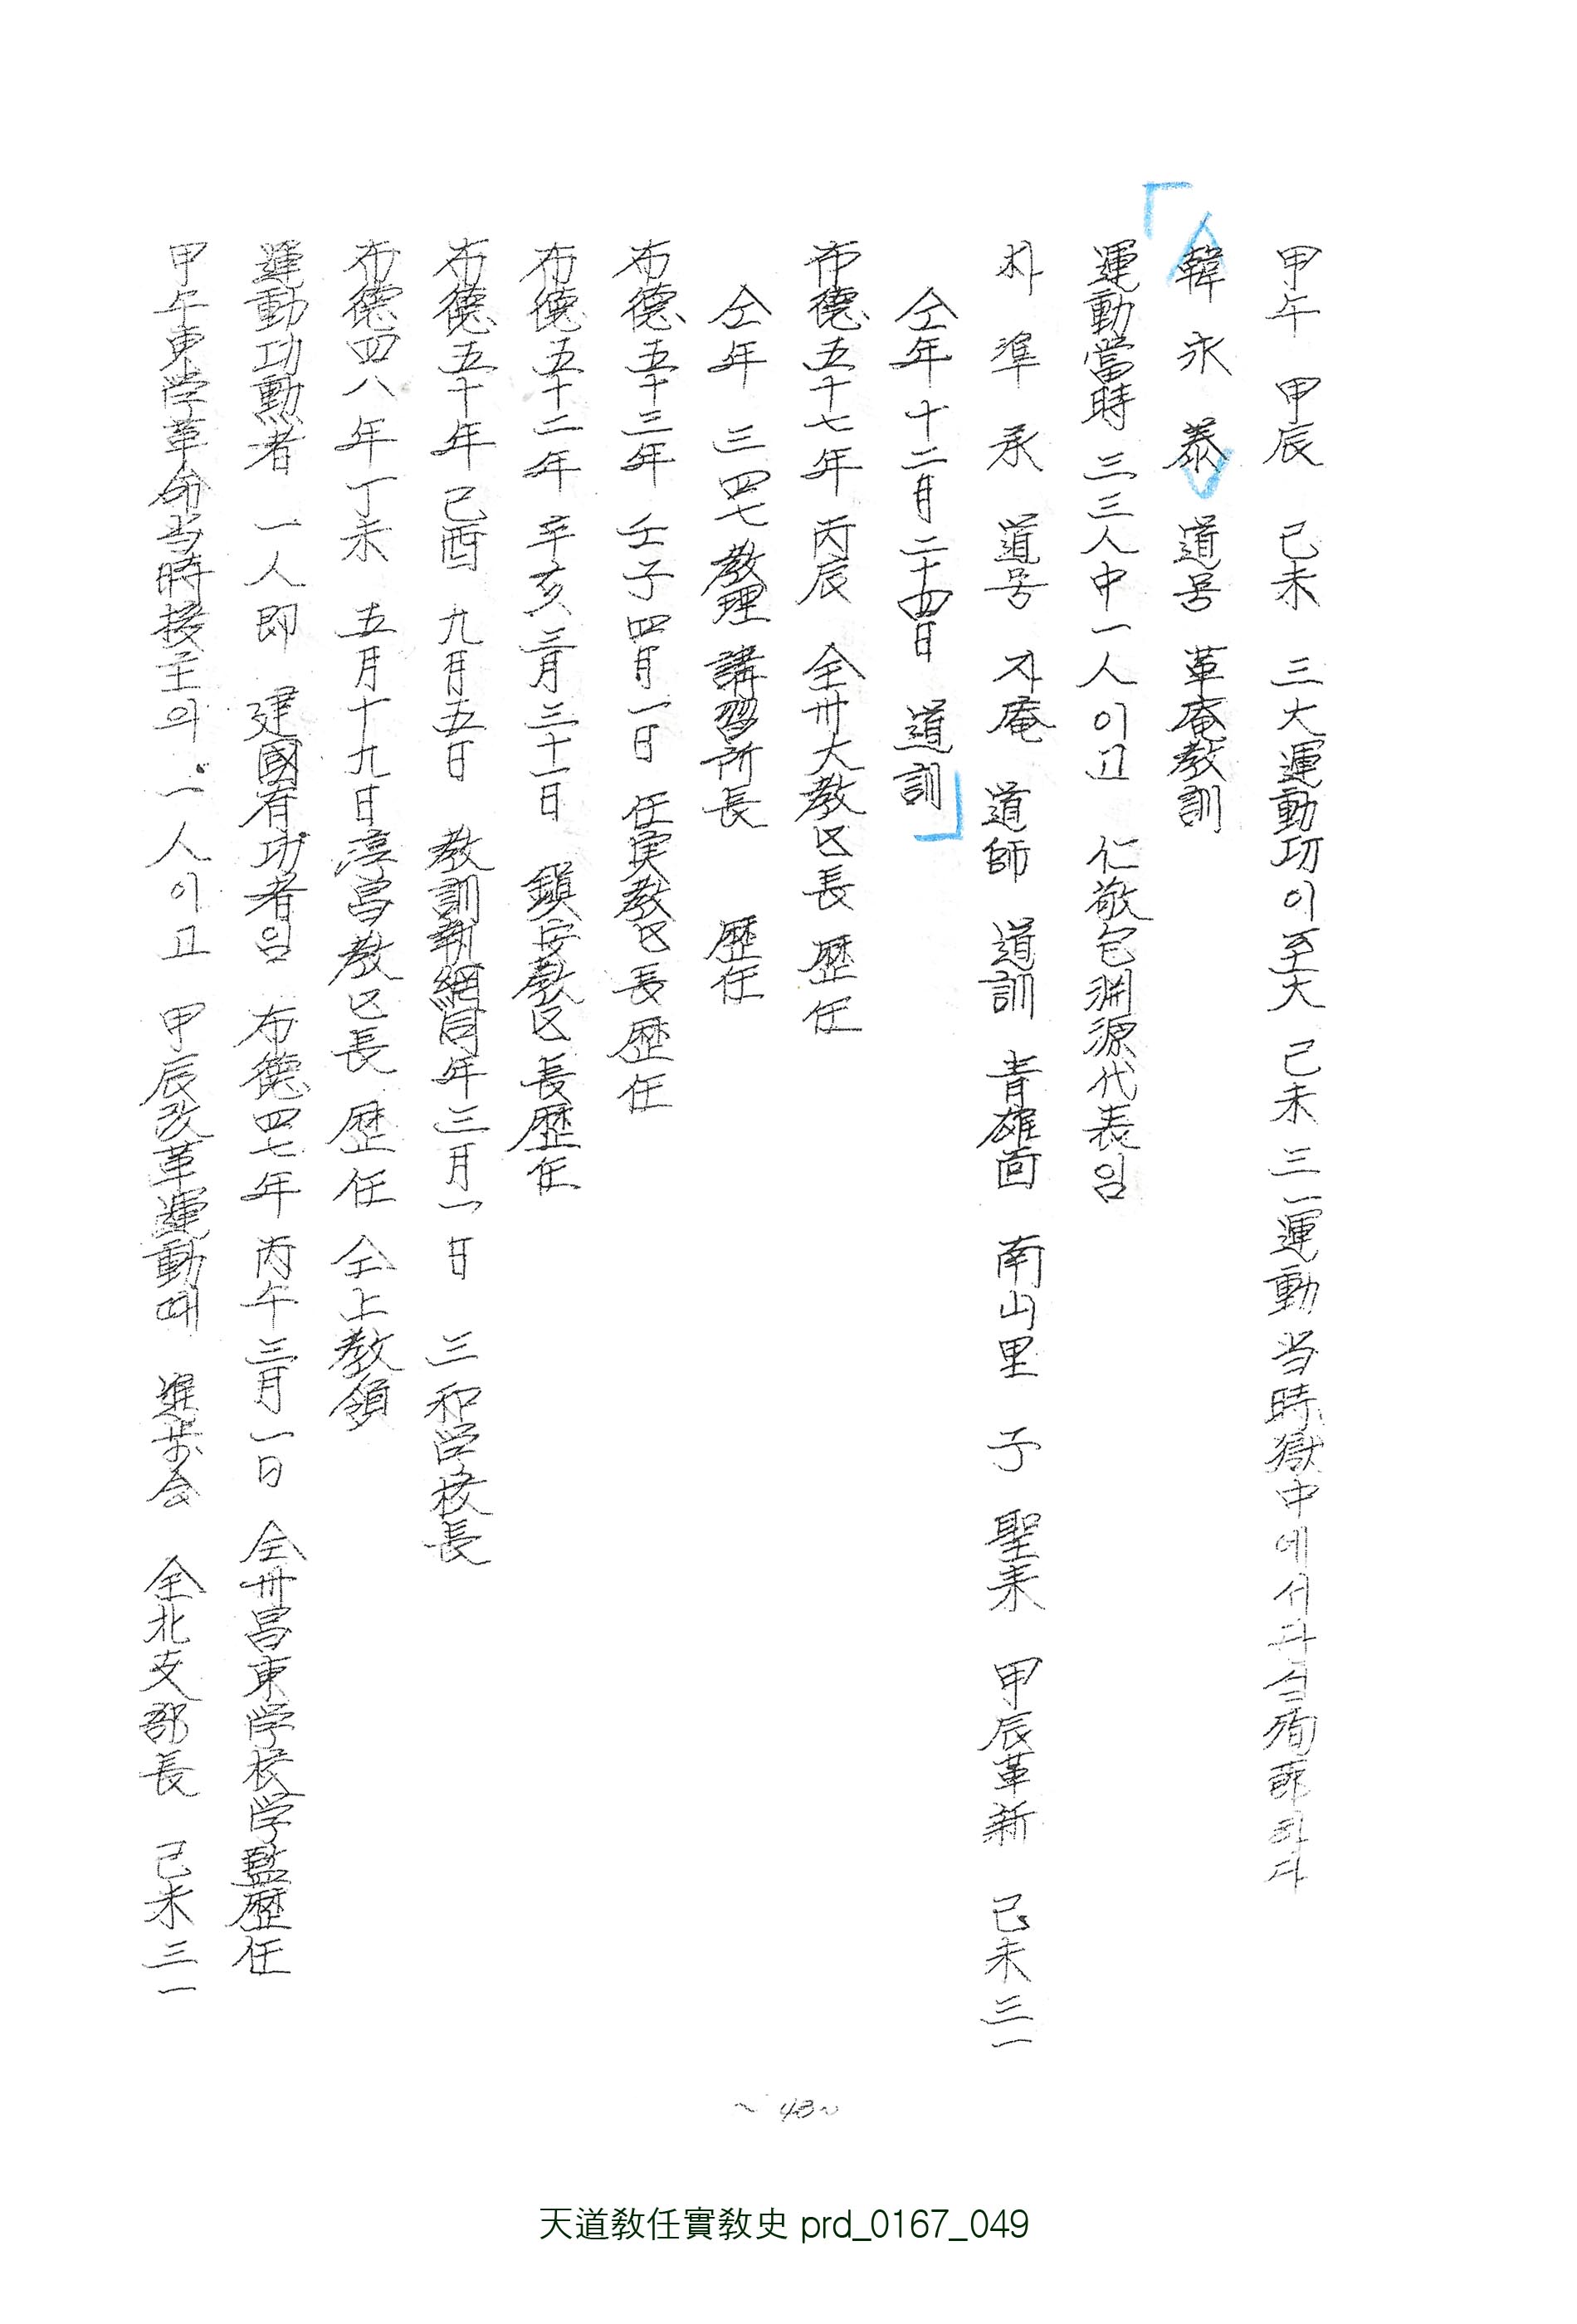 甲午 甲辰 己未 三大運動功이至大 己未 三一運動 当時 獄中에서다시殉節하다
韓永泰 道号 革庵教訓
運動當時 三三人中一人이고 仁敬包淵源代表임
朴準承 道号 泚庵 道師 道訓 青雄面 南山里 子 聖来 甲辰革新 己未三一
仝年十二月二十四日 道訓
布德五十七年 丙辰 全州大教区長 歴任
仝年 三四七 教理講習所長 歴任
布德五十三年 壬子四月一日 任実教区長歴任
布德五十二年 辛亥三月三十一日 鎭安教区長歴任
布德五十年 己酉 九月五日 教訓 同年三月一日 三和学校長
布德四八年丁未 五月十九日淳昌教区長 歴任 仝上教領
運動功勳者 一人即 建國有功者임 布德四七年 丙午三月一日 全州昌東学校学監歴任
甲午東学革命当時接主의 一人이고 甲辰改革運動때 進步会 全北支部長 己未三一
~43~
天道敎任實敎史 prd_0167_049